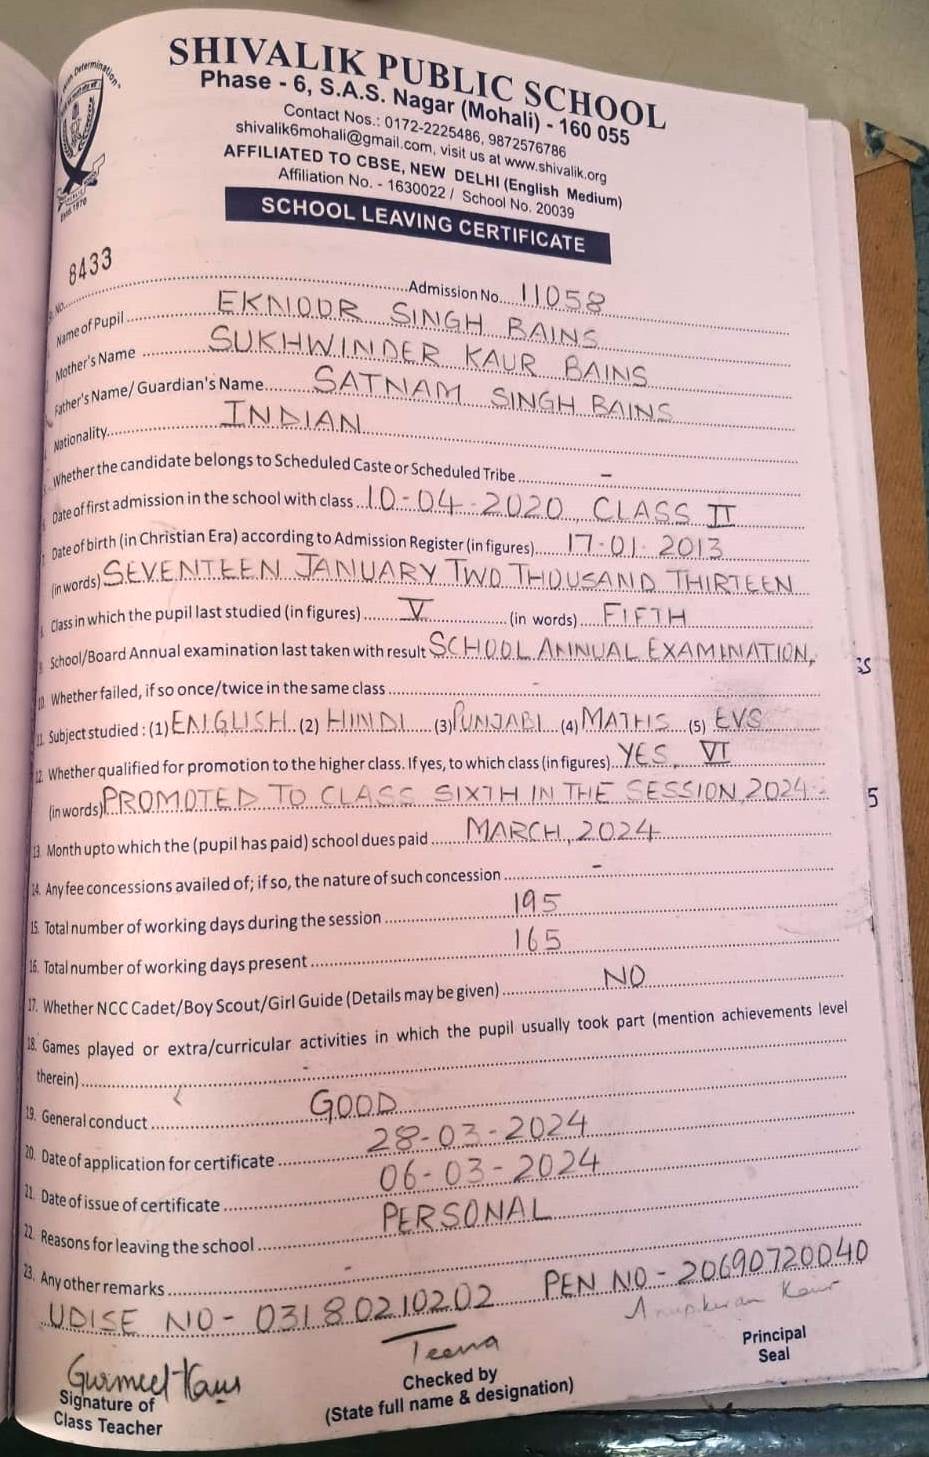 SHIVALIK PUBLIC SCHOOL
Phase - 6, S.A.S. Nagar (Mohali) - 160 055
Contact Nos.: 0172-2225486, 9872576786
shivalik6mohali@gmail.com, visit us at www.shivalik.org
AFFILIATED TO CBSE, NEW DELHI (English Medium)
Affiliation No. - 1630022 / School No. 20039
SCHOOL LEAVING CERTIFICATE
No. 8433 Admission No. 11058
Name of Pupil EKNOOR SINGH BAINS
Mother's Name SUKHWINDER KAUR BAINS
Father's Name/ Guardian's Name SATNAM SINGH BAINS
Nationality INDIAN
Whether the candidate belongs to Scheduled Caste or Scheduled Tribe -
Date of first admission in the school with class 10-04-2020, CLASS II
Date of birth (in Christian Era) according to Admission Register (in figures) 17-01-2013
(in words) SEVENTEEN JANUARY TWO THOUSAND THIRTEEN
Class in which the pupil last studied (in figures) V (in words) FIFTH
School/Board Annual examination last taken with result SCHOOL ANNUAL EXAMINATION,
10. Whether failed, if so once/twice in the same class -
11. Subject studied : (1) ENGLISH (2) HINDI (3) PUNJABI (4) MATHS (5) EVS
12. Whether qualified for promotion to the higher class. If yes, to which class (in figures) YES, VI
(in words) PROMOTED TO CLASS SIXTH IN THE SESSION, 2024-
13. Month upto which the (pupil has paid) school dues paid MARCH, 2024
14. Any fee concessions availed of; if so, the nature of such concession -
15. Total number of working days during the session 195
16. Total number of working days present 165
17. Whether NCC Cadet/Boy Scout/Girl Guide (Details may be given) NO
18. Games played or extra/curricular activities in which the pupil usually took part (mention achievements level
therein) -
19. General conduct GOOD
20. Date of application for certificate 28-03-2024
21. Date of issue of certificate 06-03-2024
22. Reasons for leaving the school PERSONAL
23. Any other remarks -
UDISE NO- 03180210202 PEN NO- 20690720040
Gurmeet Kaur Teena Anupkiran Kaur
Signature of Class Teacher
Checked by
(State full name & designation)
Principal
Seal